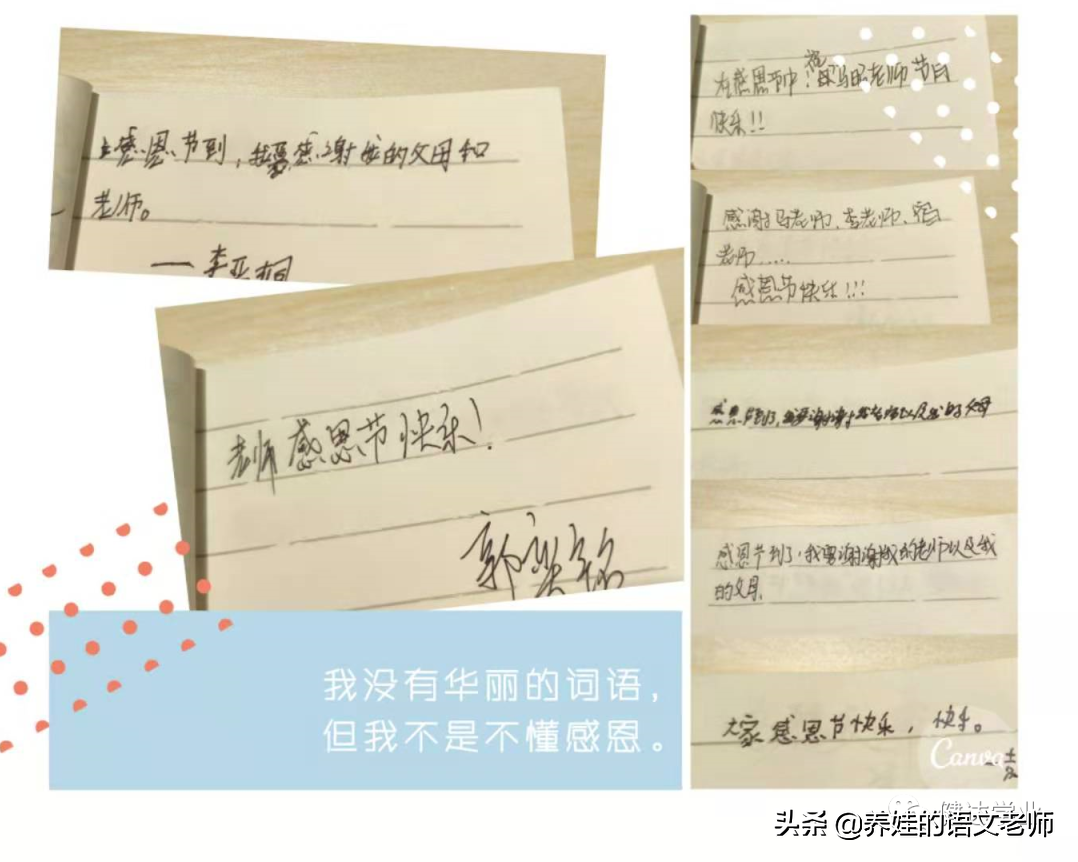 感恩节到，我要感谢我的父母和
老师。
——李亚桐
老师感恩节快乐！
郭 铭
我没有华丽的词语，
但我不是不懂感恩。
在感恩节中，祝 马 老师节日
快乐！！
感谢马老师、李老师、宿
老师.....
感恩节快乐！！！
感恩节到了，我要谢谢 老师以及我的父母
感恩节到了，我要谢谢我的老师以及我
的父母
大家感恩节快乐，快乐。
Canva
健达学业
头条 @养娃的语文老师